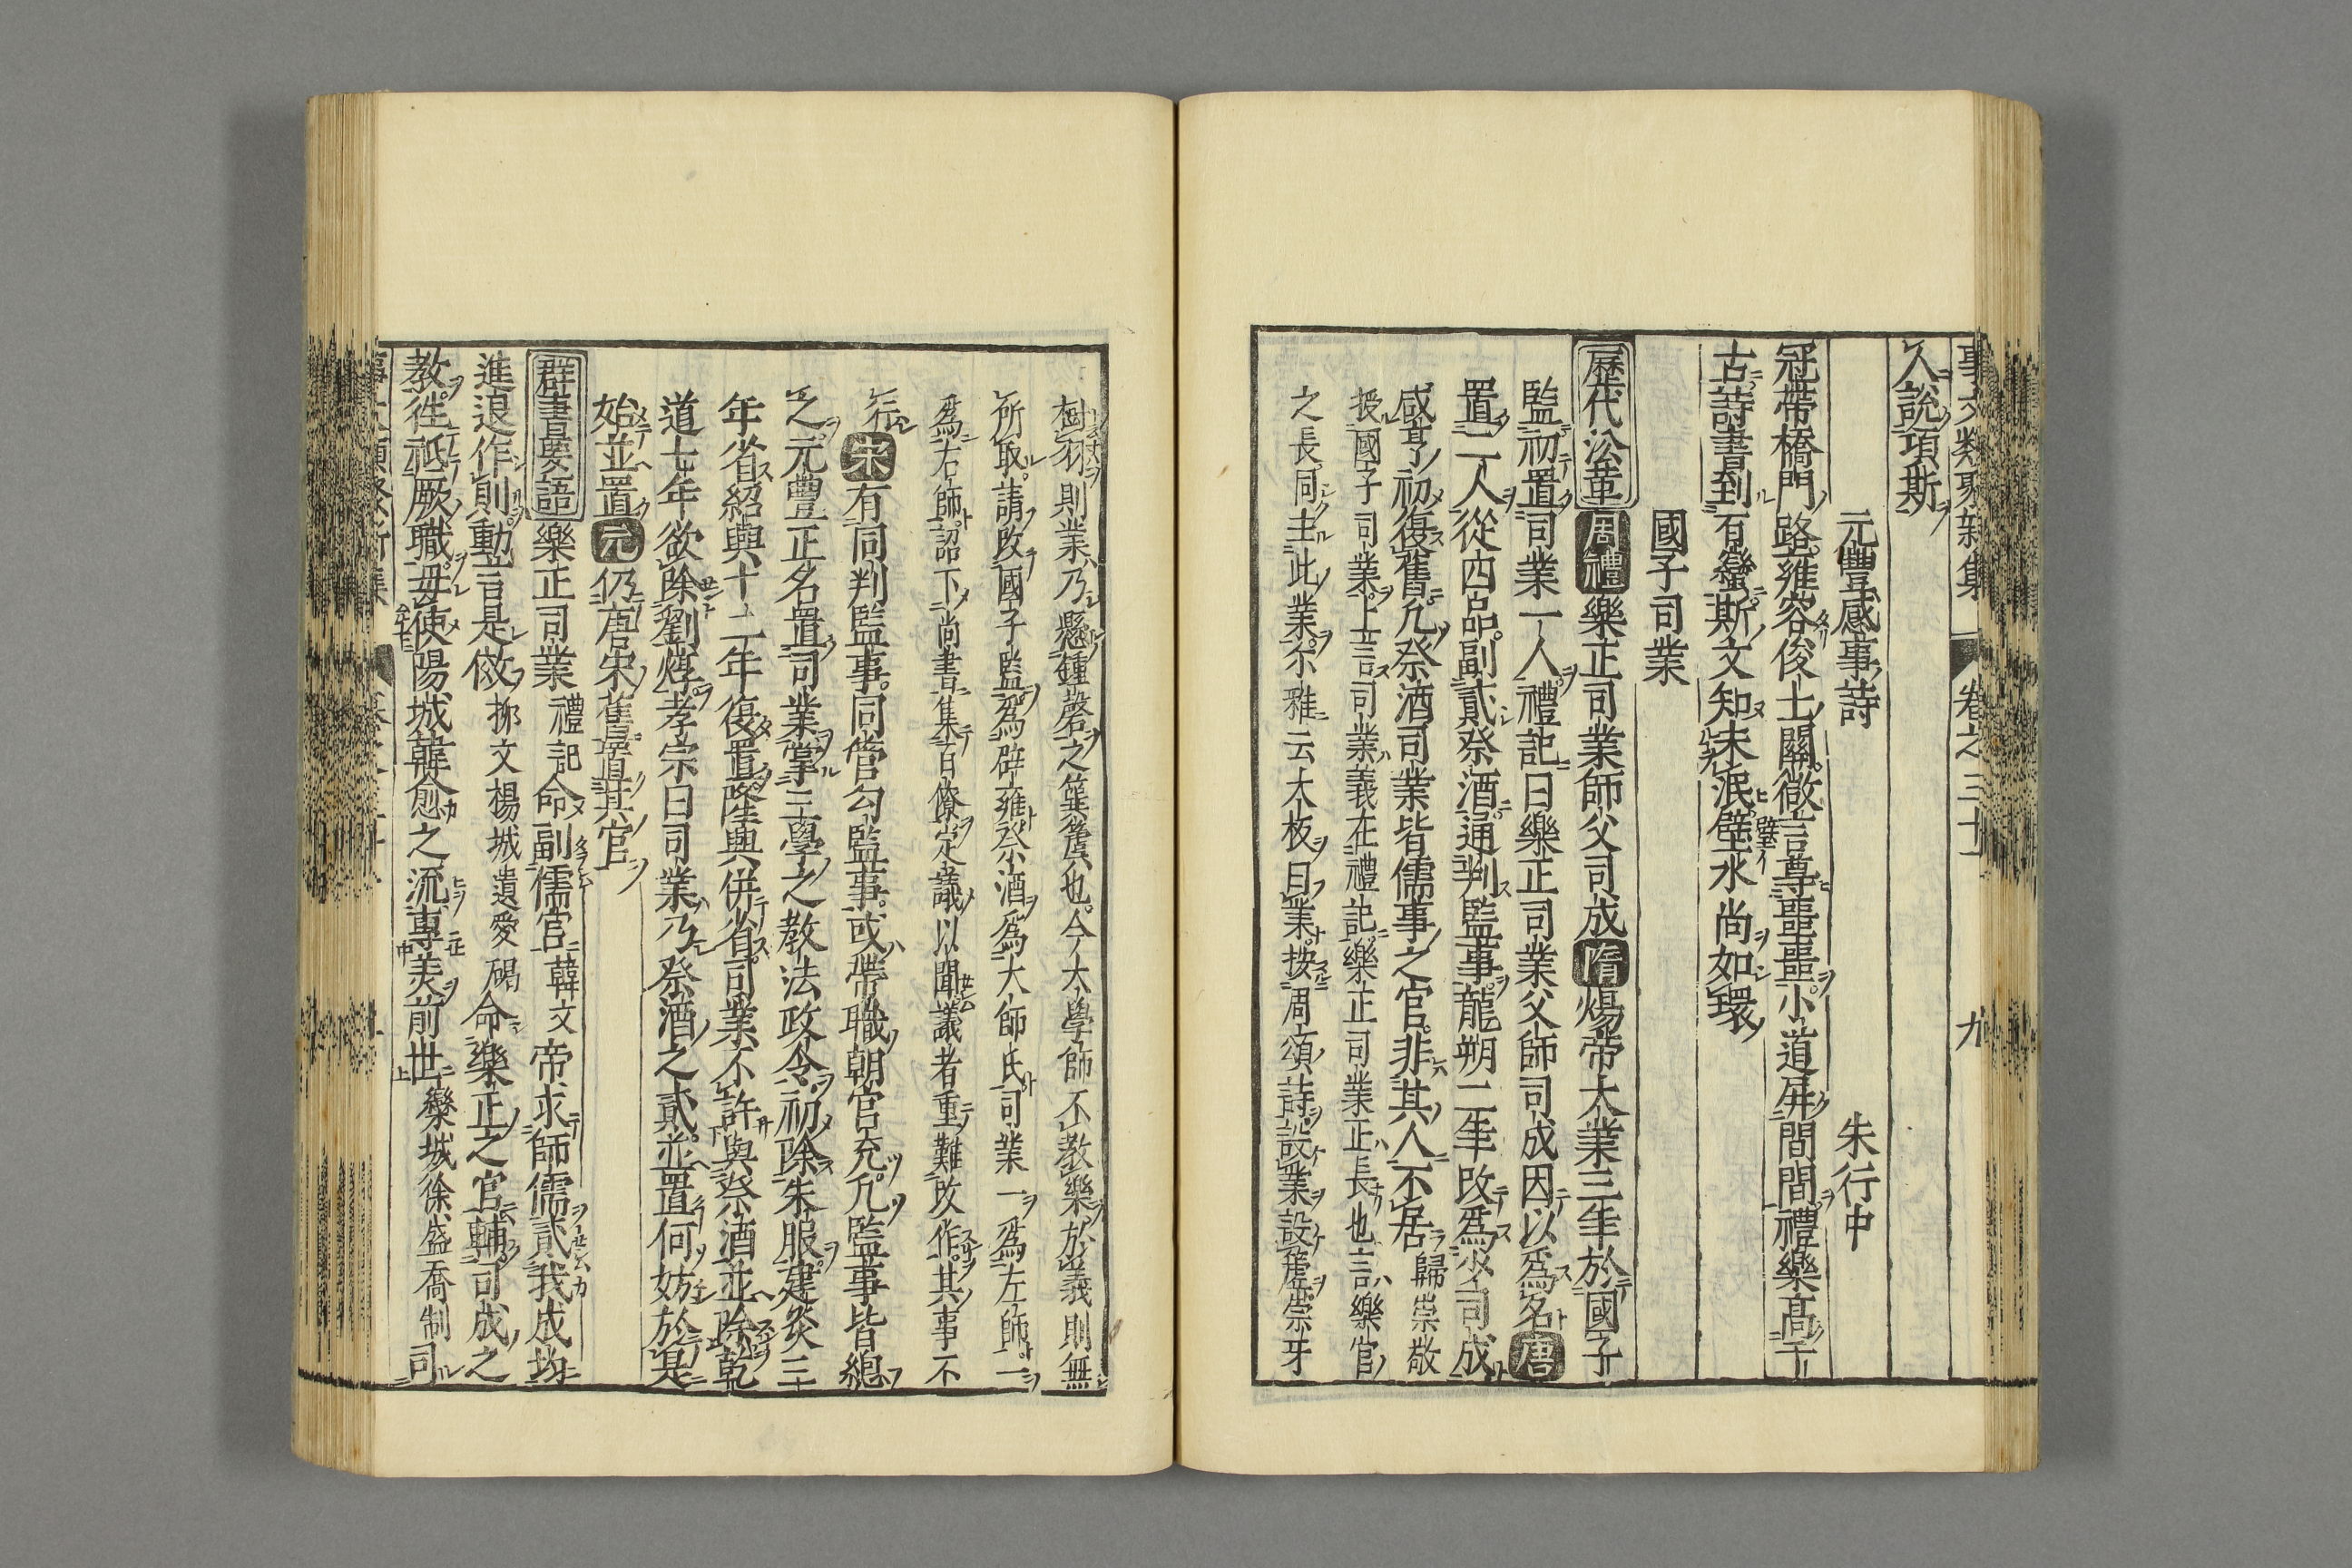 事文類聚新集 卷之三十一 九
人說項斯
元豐感事詩 朱行中
冠帶橋門路雍容俊士關微言尊噩噩小道屏間間禮樂高千
古詩書到百蠻斯文知未泯璧水尚如環
國子司業
歷代沿革 周禮 樂正司業師父司成 隋 煬帝大業三年於國子
監初置司業一人禮記曰樂正司業父師司成因以爲名 唐
置二人從四品副貳祭酒通判監事龍朔二年改爲少司成
咸亨初復舊凡祭酒司業皆儒事之官非其人不居歸崇敬
授國子司業上言司業義在禮記樂正司業正長也言樂官
之長同主此業尔雅云大板曰業按周頌詩設業設簴崇牙
樹羽則業乃懸鍾磬之簨簴也今太學師不教樂於義則無
所取請改國子監爲辟雍祭酒爲大師氏司業一爲左師一
爲右師詔下尚書集百僚定議以聞議者重難改作其事不
行 宋 有同判監事同管勾監事或帶職朝官充凡監事皆總
之元豐正名置司業掌三學之教法政令初除朱服建炎三
年省紹興十二年復置隆興併省司業不許與祭酒並除乾
道七年欲除劉焞孝宗曰司業乃祭酒之貳並置何妨於是
始並置 元 仍唐宋舊置其官
群書要語 樂正司業禮記命副儒官韓文帝求師儒貳我成均
進退作則動言是傚柳文楊城遺愛碣命樂正之官輔司成之
教徃祗厥職毋使陽城韓愈之流專美前世欒城徐盛喬制司